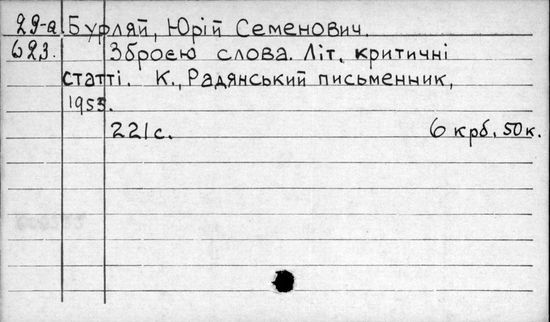 29-а. Бурляй, Юрій Семенович.
623. Зброєю слова. Літ. критичні
статті. К., Радянський письменник,
1953.
221с. 6 крб. 50к.